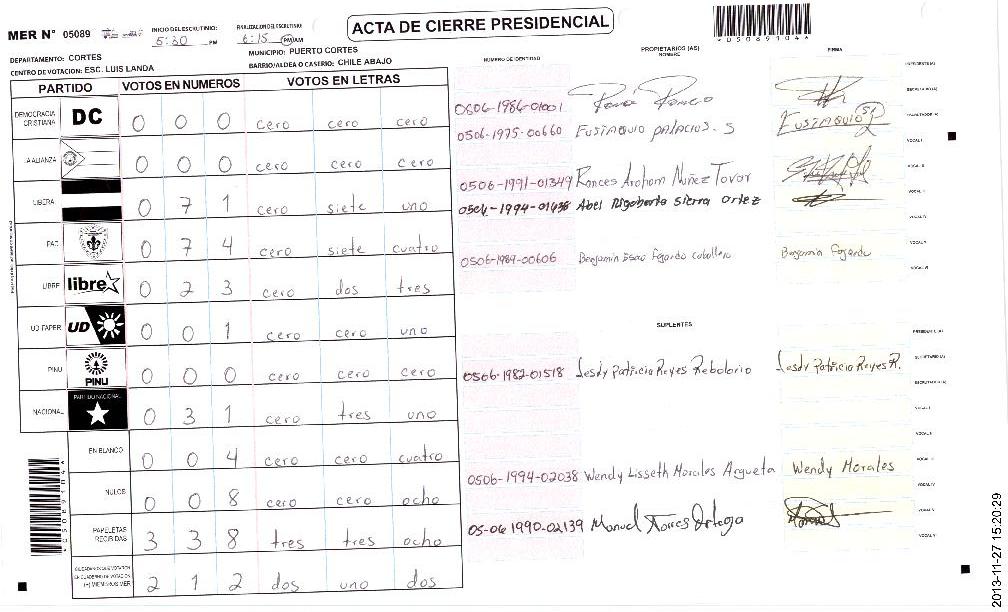 ACTA DE CIERRE PRESIDENCIAL
MER N° 05089
INICIO DEL ESCRUTINIO: 5:30 PM
FINALIZACION DEL ESCRUTINIO: 6:15 PM/AM
*05089104*
DEPARTAMENTO: CORTES
MUNICIPIO: PUERTO CORTES
CENTRO DE VOTACION: ESC. LUIS LANDA
BARRIO/ALDEA O CASERIO: CHILE ABAJO
PARTIDO VOTOS EN NUMEROS VOTOS EN LETRAS
DEMOCRACIA CRISTIANA DC 0 0 0 cero cero cero
LA ALIANZA 0 0 0 cero cero cero
LIBERA 0 7 1 cero siete uno
PAC 0 7 4 cero siete cuatro
LIBRE libre 0 2 3 cero dos tres
UD FAPER UD 0 0 1 cero cero uno
PINU PINU 0 0 0 cero cero cero
NACIONAL PARTIDO NACIONAL 0 3 1 cero tres uno
EN BLANCO 0 0 4 cero cero cuatro
NULOS 0 0 8 cero cero ocho
PAPELETAS RECIBIDAS 3 3 8 tres tres ocho
CIUDADANOS QUE VOTARON EN CUADERNO DE VOTACION (+) MIEMBROS MER 2 1 2 dos uno dos
*05089104*
PROPIETARIOS (AS)
NUMERO DE IDENTIDAD NOMBRE FIRMA
PRESIDENTE(A)
0506-1986-01001 SECRETARIO(A)
0506-1975-00660 EUSTAQUIO PALACIOS. S EUSTAQUIO ESCRUTADOR(A)
VOCAL I
0506-1991-01349 Ronces Aroham Nuñez Tovar VOCAL II
0506-1994-01635 Abel Rigoberto Sierra Ortez VOCAL III
VOCAL IV
0506-1989-00606 Benjamin Isaac Fajardo Caballero Benjamin Fajardo VOCAL V
VOCAL VI
SUPLENTES
PRESIDENTE(A)
0506-1982-01518 Lesdy Patricia Reyes Rebolorio Lesdy Patricia Reyes R. SECRETARIO(A)
ESCRUTADOR(A)
VOCAL I
VOCAL II
0506-1994-02038 Wendy Lisseth Morales Argueta Wendy Morales VOCAL III
VOCAL IV
05-06 1990-02139 Manuel Torres Ortega VOCAL V
VOCAL VI
2013-11-27 15:20:29